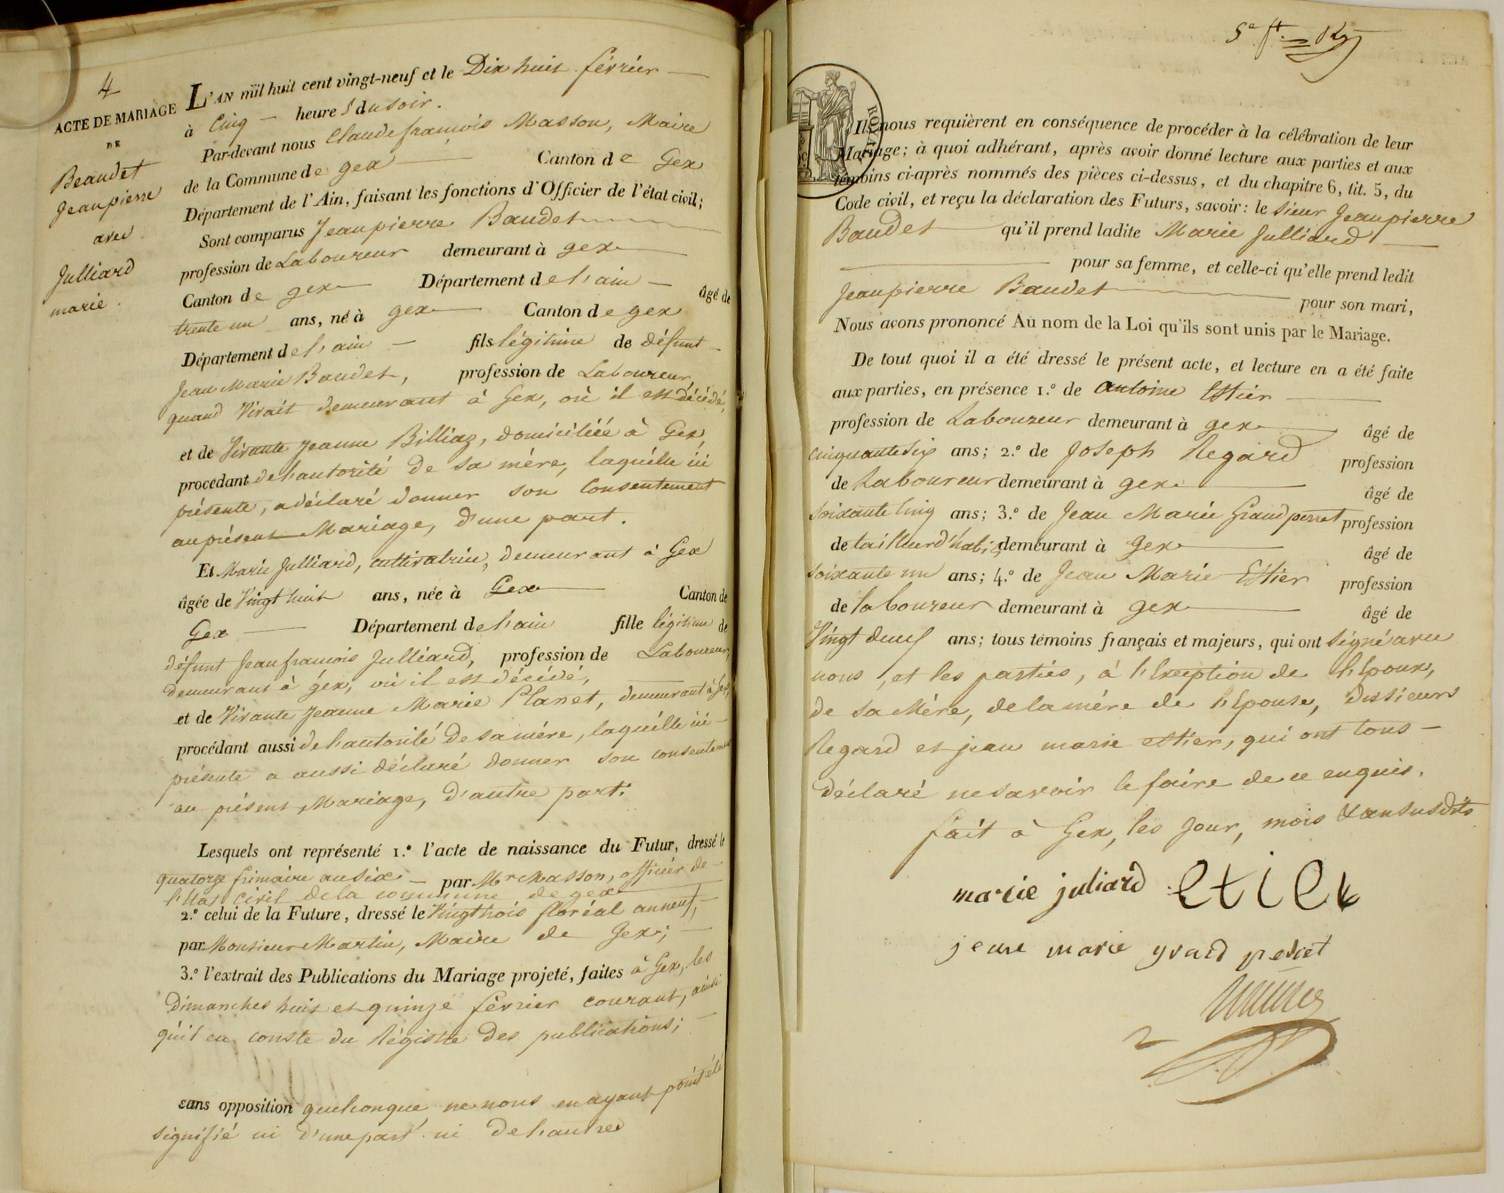 4
ACTE DE MARIAGE
DE
Beaudet
Jeanpierre
avec
Julliard
marie.
L'AN mil huit cent vingt-neuf et le Dix huit février
à Cinq heures du soir.
Par-devant nous Claude françois Masson, Maire
de la Commune de gex Canton de Gex
Département de l'Ain, faisant les fonctions d'Officier de l'état civil;
Sont comparus Jeanpierre Baudet
profession de Laboureur demeurant à gex
Canton de gex Département de l'ain âgé de
trente un ans, né à gex Canton de gex
Département de l'ain fils légitime de défunt
Jean Marie Baudet, profession de Laboureur
quand Vivait demeurant à Gex, où il est décédé,
et de Vivante Jeanne Billiaz, domiciliée à Gex,
procédant de l'autorité de sa mère, laquelle ici
présente, a déclaré donner son Consentement
au présent Mariage, d'une part.
Et Marie Julliard, cultivatrice, demeurant à Gex
âgée de Vingt huit ans, née à Gex Canton de
Gex Département de l'ain fille légitime de
défunt Jean françois Julliard, profession de Laboureur,
demeurant à gex, où il est décédé,
et de Vivante Jeanne Marie Planet, demeurant à Gex,
procédant aussi de l'autorité de sa mère, laquelle ici
présente a aussi déclaré donner son consentement
au présent Mariage, d'autre part.
Lesquels ont représenté 1.º l'acte de naissance du Futur, dressé le
quatorze frimaire an six par Mr Masson, officier de
l'Etat civil de la commune de gex
2.º celui de la Future, dressé le Vingt trois floréal an neuf,
par Monsieur Martin, Maire de Gex;
3.º l'extrait des Publications du Mariage projeté, faites à Gex, les
Dimanches huit et quinze février courant, ainsi
qu'il en conste du Régistre des publications;
sans opposition quelconque, ne nous en ayant point été
signifié ni d'une part ni de l'autre
5e ft.
ROYAL
Ils nous requièrent en conséquence de procéder à la célébration de leur
Mariage; à quoi adhérant, après avoir donné lecture aux parties et aux
témoins ci-après nommés des pièces ci-dessus, et du chapitre 6, tit. 5, du
Code civil, et reçu la déclaration des Futurs, savoir: le sieur Jeanpierre
Baudet qu'il prend ladite Marie Julliard
pour sa femme, et celle-ci qu'elle prend ledit
Jeanpierre Baudet pour son mari,
Nous avons prononcé Au nom de la Loi qu'ils sont unis par le Mariage.
De tout quoi il a été dressé le présent acte, et lecture en a été faite
aux parties, en présence 1.º de antoine Ettier
profession de Laboureur demeurant à gex âgé de
cinquante six ans; 2.º de Joseph Regard profession
de Laboureur demeurant à gex âgé de
soixante cinq ans; 3.º de Jean Marie Grandperret profession
de tailleur d'habits demeurant à gex âgé de
soixante un ans; 4.º de Jean Marie Ettier profession
de laboureur demeurant à gex âgé de
Vingt deux ans; tous témoins français et majeurs, qui ont signé avec
nous, et les parties, à l'Exception de l'Epoux,
de sa Mère, de la mère de l'Epouse, des sieurs
Regard et jean marie ettier, qui ont tous
déclaré ne savoir le faire de ce enquis.
fait à Gex, les Jour, mois & an susdits
marie juliard etier
jean marie grand perret